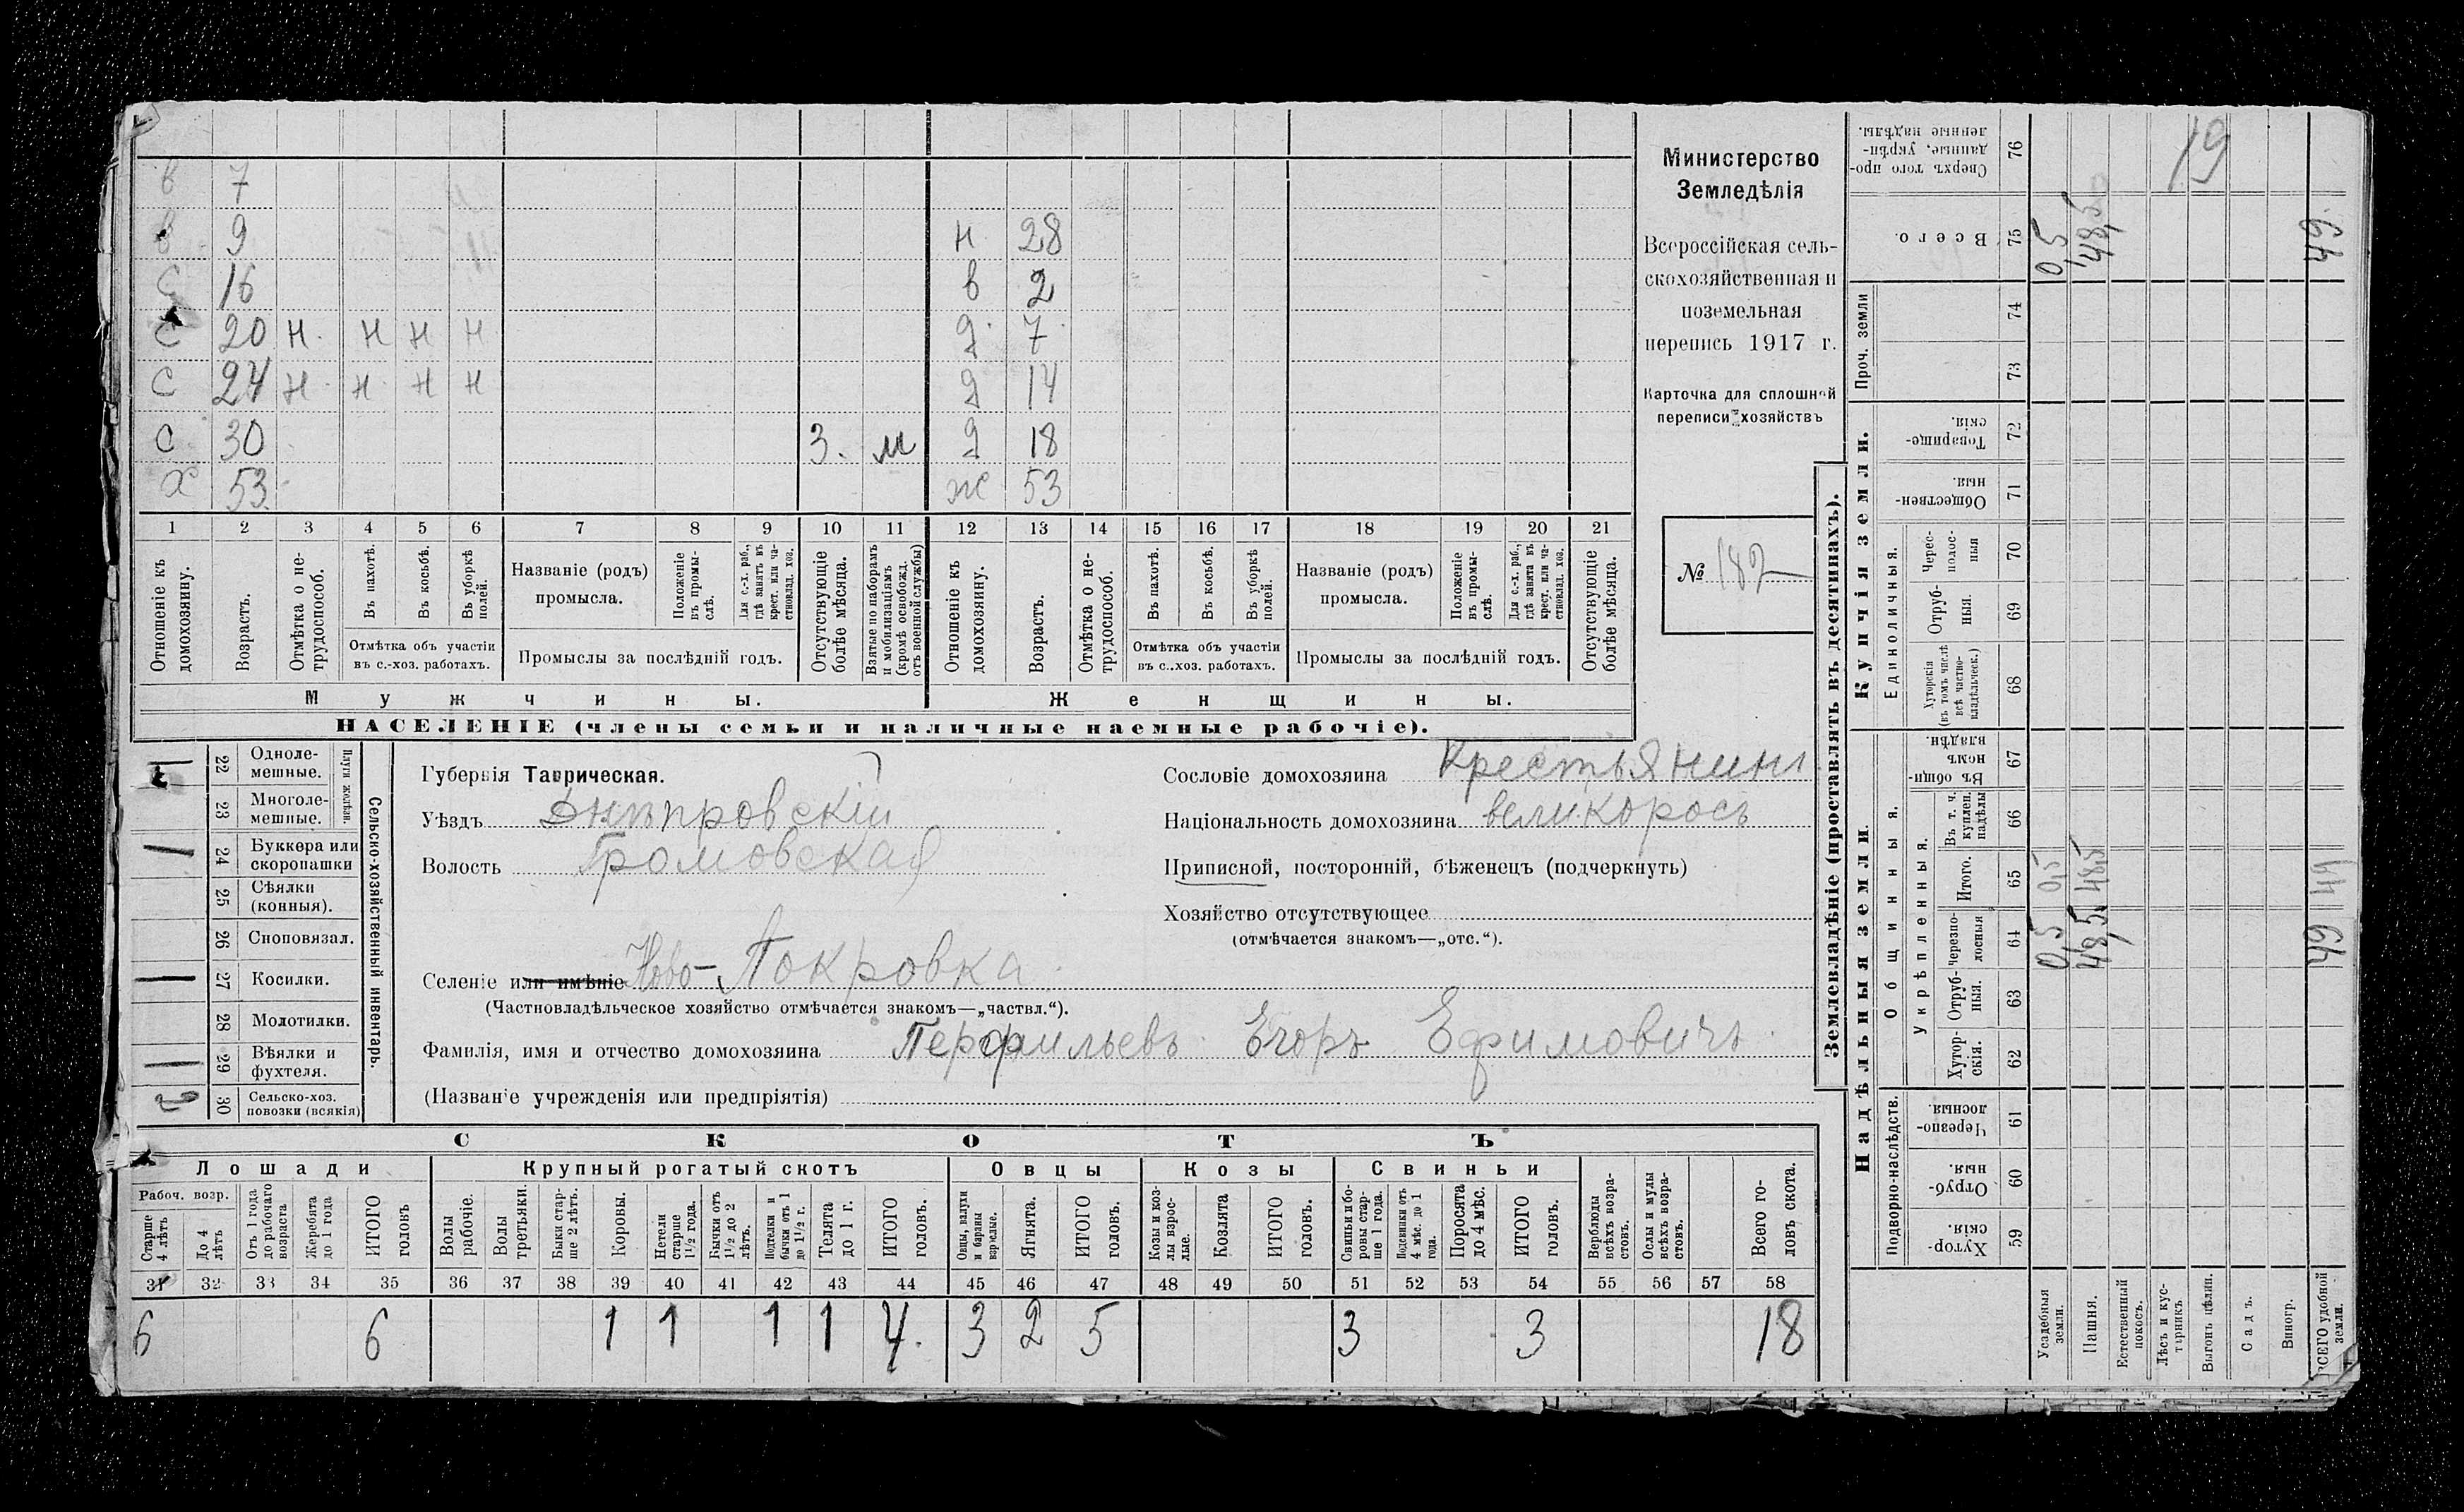 в 7
в 9 н 28
с 16 в 2
с 20 н. н н н д. 7.
с 24 н. н. н н д 14
с 30 3. м д 18
х 53 ж 53
1 2 3 4 5 6 7 8 9 10 11 12 13 14 15 16 17 18 19 20 21
Отношеніе къ домохозяину.
Возрастъ.
Отмѣтка о не-трудоспособ.
Въ пахотѣ.
Въ косьбѣ.
Въ уборкѣ полей.
Отмѣтка объ участіи
въ с.-хоз. работахъ.
Названіе (родъ)
промысла.
Положеніе въ промы-слѣ.
Для с.-х. раб., гдѣ занятъ въ крест. или ча-стновлад. хоз.
Промыслы за послѣдній годъ.
Отсутствующіе болѣе мѣсяца.
Взятые по наборамъ и мобилизаціямъ (кромѣ освобожд. отъ военной службы)
Отношеніе къ домохозяину.
Возрастъ.
Отмѣтка о не-трудоспособ.
Въ пахотѣ.
Въ косьбѣ.
Въ уборкѣ полей.
Отмѣтка объ участіи
въ с..хоз. работахъ.
Названіе (родъ)
промысла.
Положеніе въ промы-слѣ.
Для с.-х. раб., гдѣ занята въ крест. или ча-стновлад. хоз.
Промыслы за послѣдній годъ.
Отсутствующіе болѣе мѣсяца.
Мужчины. Женщины.
НАСЕЛЕНІЕ (члены семьи и наличные наемные рабочіе).
Министерство
Земледѣлія
Всероссійская сель-
скохозяйственная и
поземельная
перепись 1917 г.
Карточка для сплошной
переписи хозяйствъ
№ 182
22 Одноле-
мешные.
23 Многоле-
мешные.
Плуги желѣзн.
24 Буккера или
скоропашки
25 Сѣялки
(конныя).
26 Сноповязал.
27 Косилки.
28 Молотилки.
29 Вѣялки и
фухтеля.
2 30 Сельско-хоз.
повозки (всякія)
Сельско-хозяйственный инвентарь.
Губернія Таврическая.
Уѣздъ Днѣпровскій
Волость Громовская
Селеніе или имѣніе Ново-Покровка
(Частновладѣльческое хозяйство отмѣчается знакомъ—„частвл.“).
Фамилія, имя и отчество домохозяина Перфильевъ Егоръ Ефимовичъ
(Названіе учрежденія или предпріятія)
Сословіе домохозяина Крестьянинъ
Національность домохозяина великоросъ
Приписной, посторонній, бѣженецъ (подчеркнуть)
Хозяйство отсутствующее
(отмѣчается знакомъ—„отс.“).
СКОТЪ
Лошади Крупный рогатый скотъ Овцы Козы Свиньи
Рабоч. возр.
Старше 4 лѣтъ
До 4 лѣтъ
Отъ 1 года до рабочаго возраста
Жеребята до 1 года
ИТОГО головъ
Волы рабочіе.
Волы третьяки.
Быки стар-ше 2 лѣтъ.
Коровы.
Нетели старше 1½ года.
Бычки отъ 1½ до 2 лѣтъ.
Подтелки и бычки отъ 1 до 1½ г.
Телята до 1 г.
ИТОГО головъ.
Овцы, валухи и бараны взрослые.
Ягнята.
ИТОГО головъ.
Козы и коз-лы взрос-лые.
Козлята
ИТОГО головъ.
Свиньи бо-ровы стар-ше 1 года.
Подсвинки отъ 4 мѣс. до 1 года.
Поросята до 4 мѣс.
ИТОГО головъ.
Верблюды всѣхъ возра-стовъ.
Ослы и мулы всѣхъ возра-стовъ.
Всего го-ловъ скота.
31 32 33 34 35 36 37 38 39 40 41 42 43 44 45 46 47 48 49 50 51 52 53 54 55 56 57 58
6 6 1 1 1 1 4. 3 2 5 3 3 18
Землевладѣніе (проставлять въ десятинахъ).
Надѣльныя земли. Купчія земли.
Подворно-наслѣдств.
Общинныя.
Укрѣпленныя.
Единоличныя.
Проч. земли
Сверхъ того про-данные, укрѣп-ленные надѣлы. 76 19
Всего. 75 0,5 48,5 49
74
73
Товарище-скія. 72
Обществен-ныя. 71
Черес-полос-ныя 70
Отруб-ныя. 69
Хуторскія (въ томъ числѣ всѣ частно-владѣльческ.) 68
Въ общин-номъ владѣн. 67
Въ т. ч. куплен. надѣлы 66
Итого. 65 0,5 48,5 49
Черезпо-лосныя 64 0,5 48,5 49
Отруб-ныя. 63
Хутор-скія. 62
Черезпо-лосныя. 61
Отруб-ныя. 60
Хутор-скія. 59
Усадебныя земли.
Пашня.
Естественный покосъ.
Лѣсъ и кус-тарникъ
Выгонъ цѣлин.
Садъ.
Виногр.
ВСЕГО удобной земли.